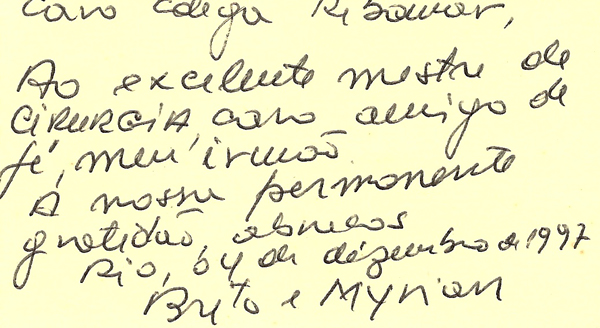 Caro colega Ribamar,
Ao excelente mestre de
CIRURGIA, caro amigo de
fé, meu irmão
A nossa permanente
gratidão, abraços
Rio, 04 de dezembro de 1997
Brito e Myrian